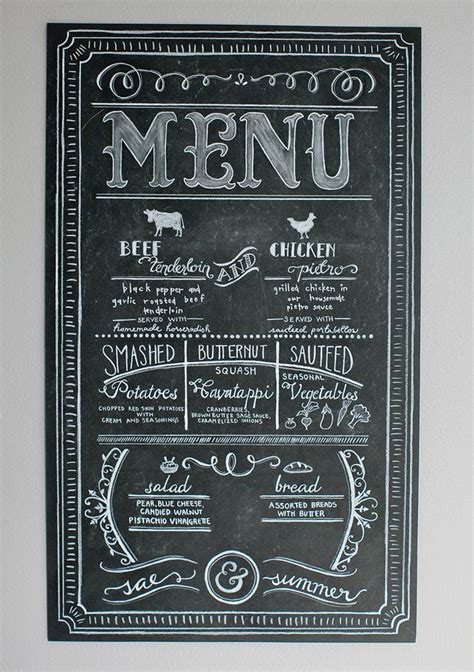 MENU
BEEF
tenderloin
black pepper and
garlic roasted beef
tenderloin
SERVED WITH
homemade horseradish
AND
CHICKEN
pietro
grilled chicken in
our housemade
pietro sauce
SERVED WITH
sauteed portabellas
SMASHED
Potatoes
CHOPPED RED SKIN POTATOES
WITH
CREAM AND SEASONINGS
BUTTERNUT
SQUASH
Cavatappi
CRANBERRIES,
BROWN BUTTER SAGE SAUCE,
CARAMELIZED ONIONS
SAUTEED
SEASONAL
Vegetables
salad
PEAR, BLUE CHEESE,
CANDIED WALNUT
PISTACHIO VINAIGRETTE
bread
ASSORTED BREADS
WITH BUTTER
sae & summer